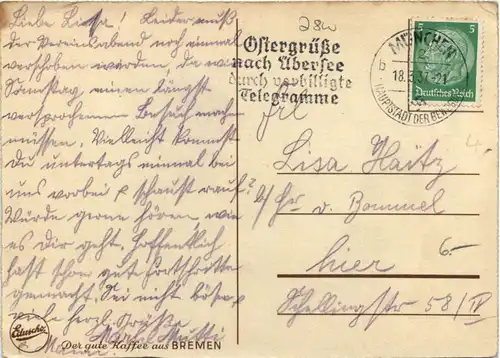 Liebe Lisa! Leider muß
der Vereinsabend noch einmal
verschoben werden, da wir
Samstag, einen längst
versprochenen Besuch machen
müssen. Vielleicht kommst
Du untertags einmal bei
uns vorbei & schaust rauf?
Würde gerne hören, wie
es dir geht. Hoffentlich
hast schon gut Fortschritte
gemacht. Sei nicht böse &
viele herzl. Grüße
Mutti
Eduscho
Der gute Kaffee aus BREMEN
28w
Ostergrüße
nach Übersee
durch verbilligte
Telegramme
MÜNCHEN
b
18.3.37
HAUPTSTADT DER BEWEGUNG
5 5
Deutsches Reich
Frl
Lisa Haitz
b/ Hr v. Bommel
hier
6.-
Schellingstr 58/IV